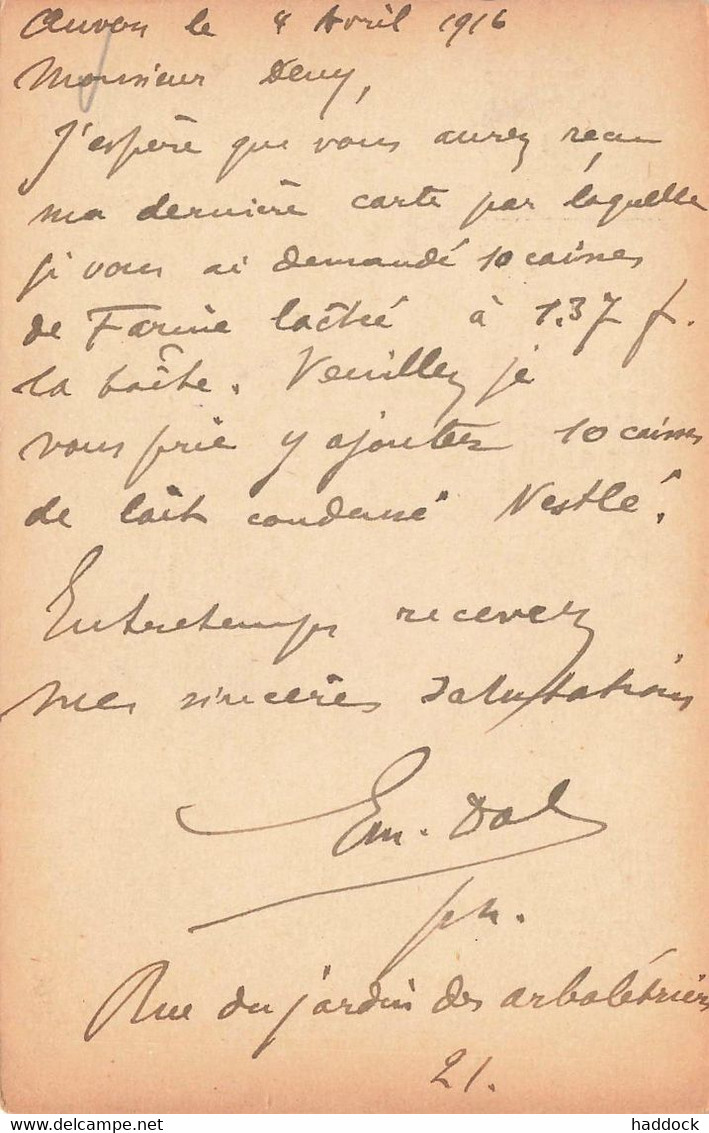 le 8 Avril 1916
Monsieur Deny,
J'espère que vous aurez reçu
ma dernière carte par laquelle
je vous ai demandé 10 caisses
de Farine lactée à 1.37 f.
la boîte. Veuillez je
vous prie y ajouter 10 caisses
de lait condensé Nestlé.
Entretemps recevez
mes sincères salutations
Em. Dol
ph.
Rue du jardin des arbalétriers
21.
Delcampe.net
haddock